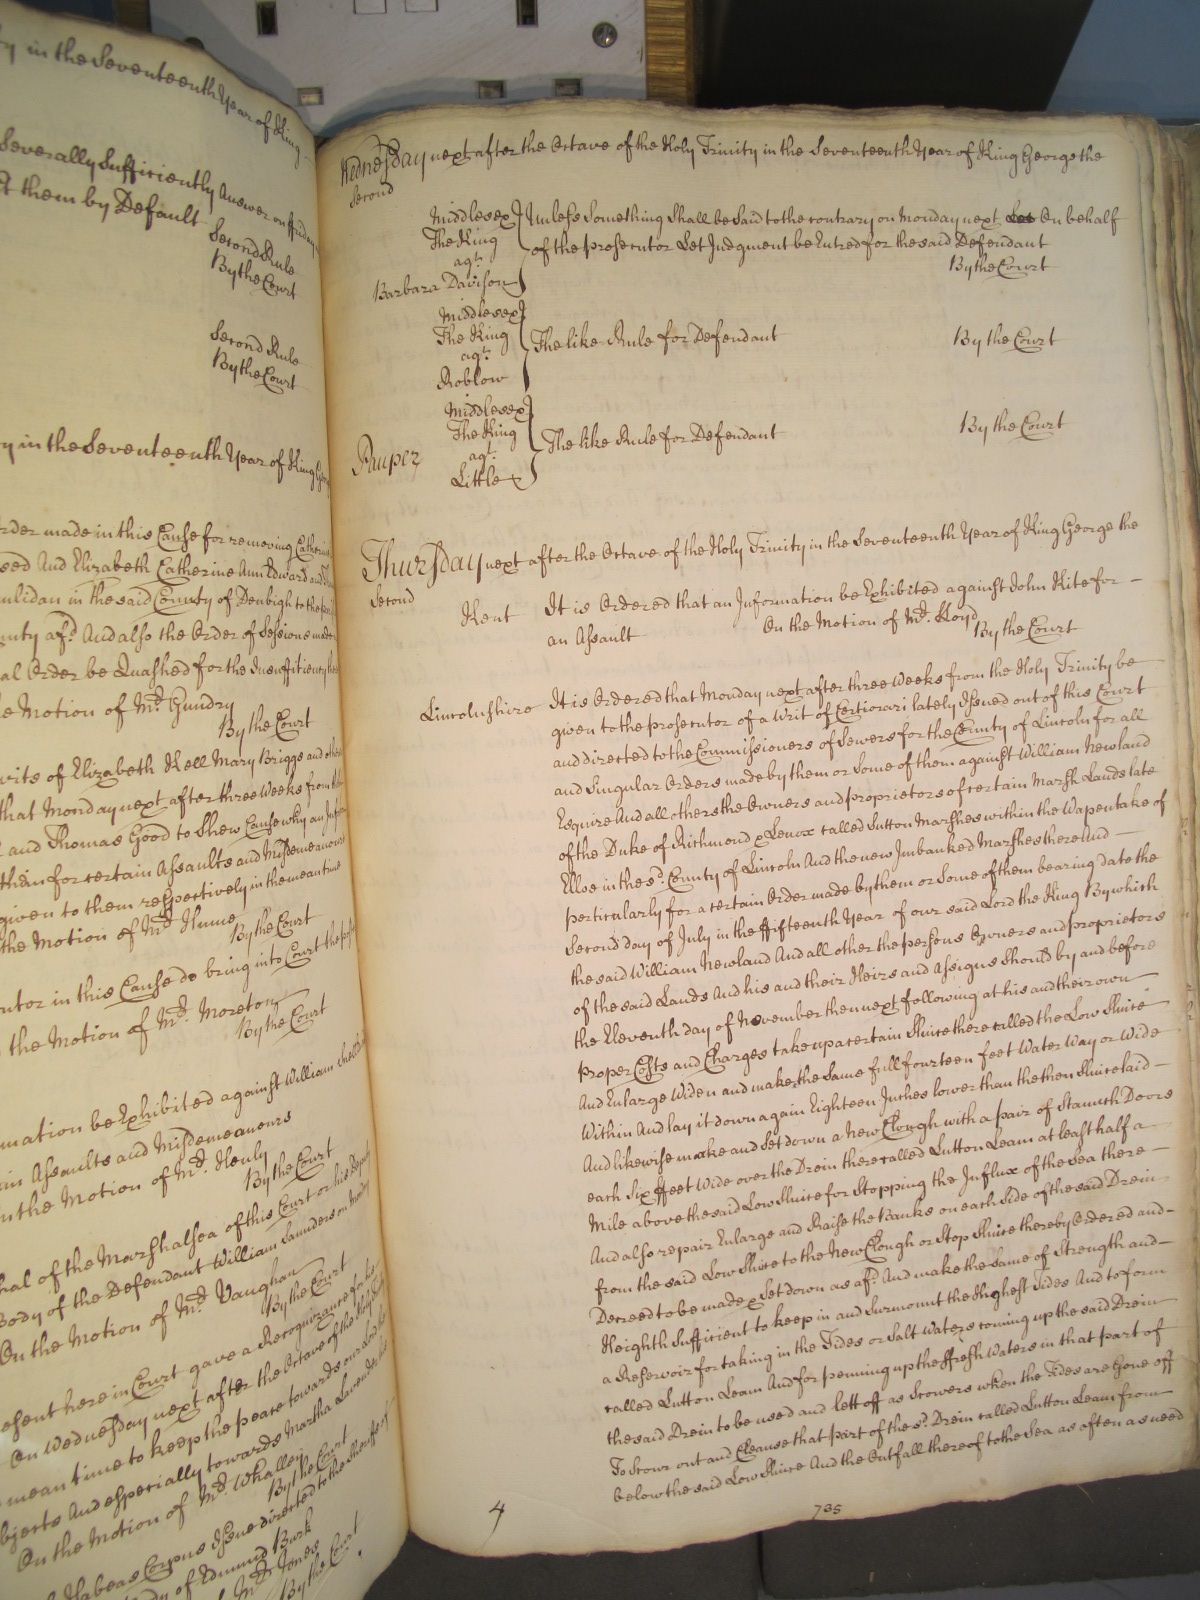 ty in the Seventeenth Year of King
Severally Sufficiently Answer on
st them by Default
Second Rule
By the Court
Second Rule
By the Court
ty in the Seventeenth Year of King
Order made in this Cause for removing
And Elizabeth Catherine Ann Edward and
in the said County of Denbigh to the
unty afs.d And also the Order of Sessions made
al Order be Quashed for the Insufficiency
e Motion of Mr. Gundry
By the Court
vits of Elizabeth Kell Mary Briggs and
that Monday next after three Weeks from
and Thomas Good to Shew Cause why an
than for certain Assaults and Misdemeanours
given to them respectively in the mean time
the Motion of Mr. Hume
By the Court
utor in this Cause do bring into Court the
the Motion of Mr. Moreton
By the Court
mation be Exhibited against William
in Assaults and Misdemeanours
n the Motion of Mr. Henly
By the Court
hal of the Marshalsea of this Court or his Deputy
Body of the Defendant William Saunders on
On the Motion of Mr. Vaughan
By the Court
esent here in Court gave a Recognizance for his
On Wednesday next after the Octave of the Holy
mean time to keep the peace towards our Lord the
bjects And especially towards Martha
On the Motion of Mr. Whaller
By the Court
Habeas Corpus Issue directed to the Sheriff of
dy of Edmund Burk
Mr. Jones
By the Court
Wednesday next after the Octave of the Holy Trinity in the Seventeenth Year of King George the
Second
Middlesex
The King
agt.
Barbara Davison
Unless Something Shall be Said to the contrary on Monday next On behalf
of the prosecutor Let Judgment be Entred for the said Defendant
By the Court
Middlesex
The King
agt.
Roblow
The like Rule for Defendant
By the Court
Pauper
Middlesex
The King
agt.
Little
The like Rule for Defendant
By the Court
Thursday next after the Octave of the Holy Trinity in the Seventeenth Year of King George the
Second
Kent
It is Ordered that an Information be Exhibited against John Kite for
an Assault
On the Motion of Mr. Lloyd
By the Court
Lincolnshire
It is Ordered that Monday next after three Weeks from the Holy Trinity be
given to the prosecutor of a Writ of Certiorari lately Issued out of this Court
and directed to the Commissioners of Sewers for the County of Lincoln for all
and Singular Orders made by them or Some of them against William Newland
Esquire And all others the Owners and proprietors of certain Marsh Lands late
of the Duke of Richmond & Lenox called Sutton Marshes within the Wapentake of
Elloe in the sd. County of Lincoln And the new Imbanked Marshes there And
perticularly for a certain Order made by them or Some of them bearing date the
Second day of July in the ffifteenth Year of our said Lord the King By which
the said William Newland And all other the persons Owners and proprietors
of the said Lands And his and their Heirs and Assigns should by and before
the Eleventh day of November then next following at his and their own
proper Costs and Charges take up a certain Sluice there called the Low Sluice
And Enlarge Widen and make the Same full fourteen feet Water Way or Wide
Within And lay it down again Eighteen Inches lower than the then Sluice laid
And likewise make and Set down a New Clough with a pair of Staunch Doors
each Six ffeet Wide over the Drein there called Lutton Leam at least half a
Mile above the said Low Sluice for Stopping the Influx of the Sea there
And also repair Enlarge and Raise the Banks on each Side of the said Drein
from the said Low Sluice to the New Clough or Stop Sluice thereby Ordered and
Decreed to be made & Set down as afs.d And make the Same of Strength and
Heighth Sufficient to keep in and Surmount the Highest Tides And to form
a Reservoir for taking in the Tides or Salt Waters coming up the said Drein
called Lutton Leam And for penning up the ffresh Waters in that part of
the said Drein to be used and lett off as Scowers when the Tides are Gone off
To Scowr out and Cleanse that part of the sd. Drein called Lutton Leam from
below the said Low Sluice And the Outfall thereof to the Sea as often as need
4
735